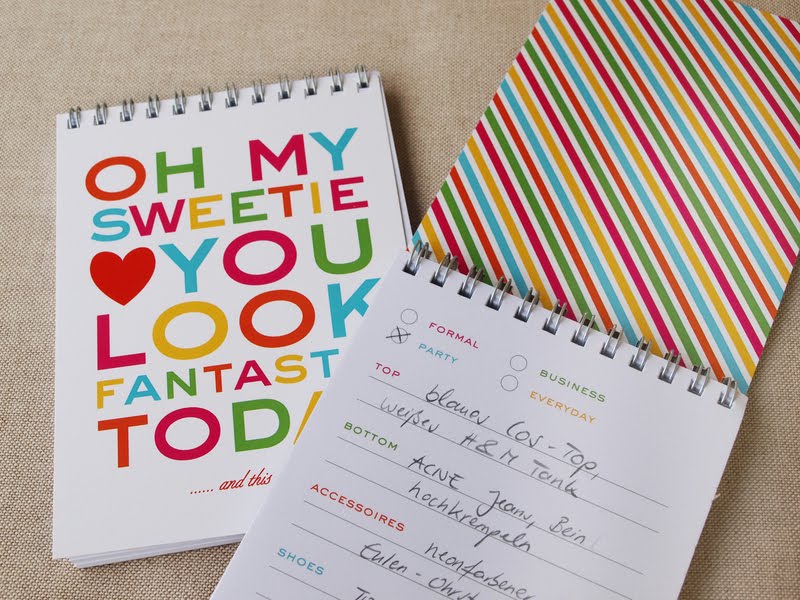 OH MY
SWEETIE
♥YOU
LOOK
FANTAST
TODA
...... and this
FORMAL
PARTY
BUSINESS
EVERYDAY
TOP
blaues COS-Top,
weißes H&M Tank
BOTTOM
ACNE Jeans, Bein
hochkrempeln
ACCESSOIRES
neonfarbener
Eulen-Ohrst
SHOES